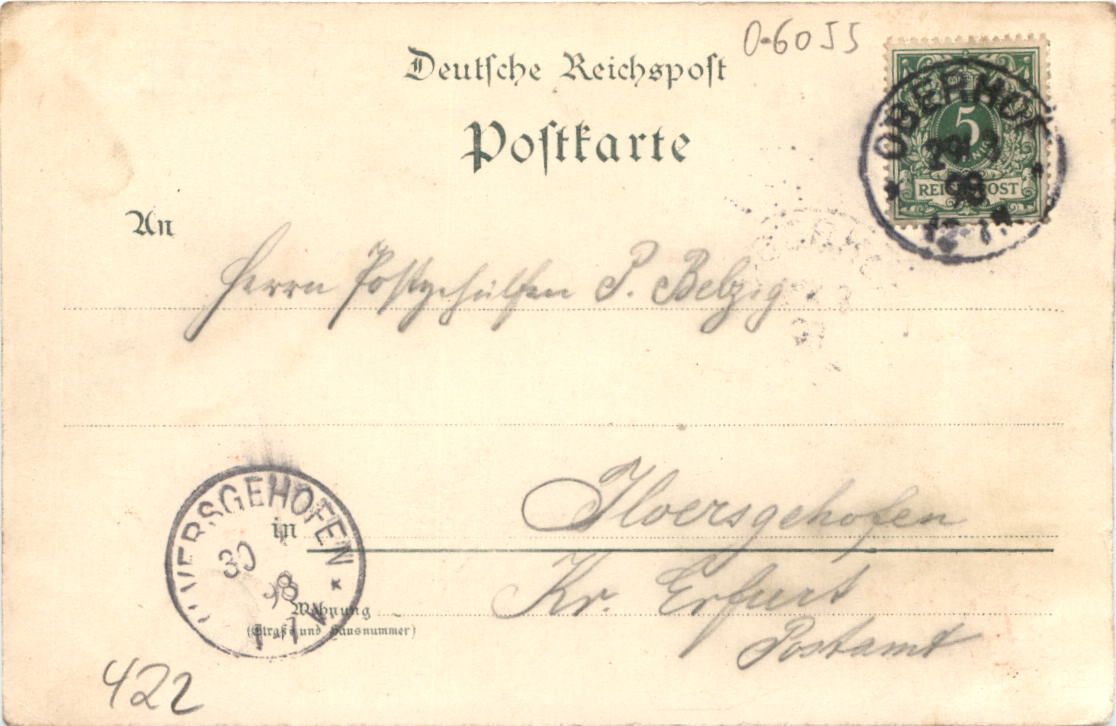 0-6055
Deutsche Reichspost
Postkarte
5
REICHSPOST
OBERHOF
98
An
Herrn Postgehülfen P. Belzig
in Ilversgehofen
ILVERSGEHOFEN
30
98
Wohnung
(Straße und Hausnummer)
Kr. Erfurt
Postamt
422